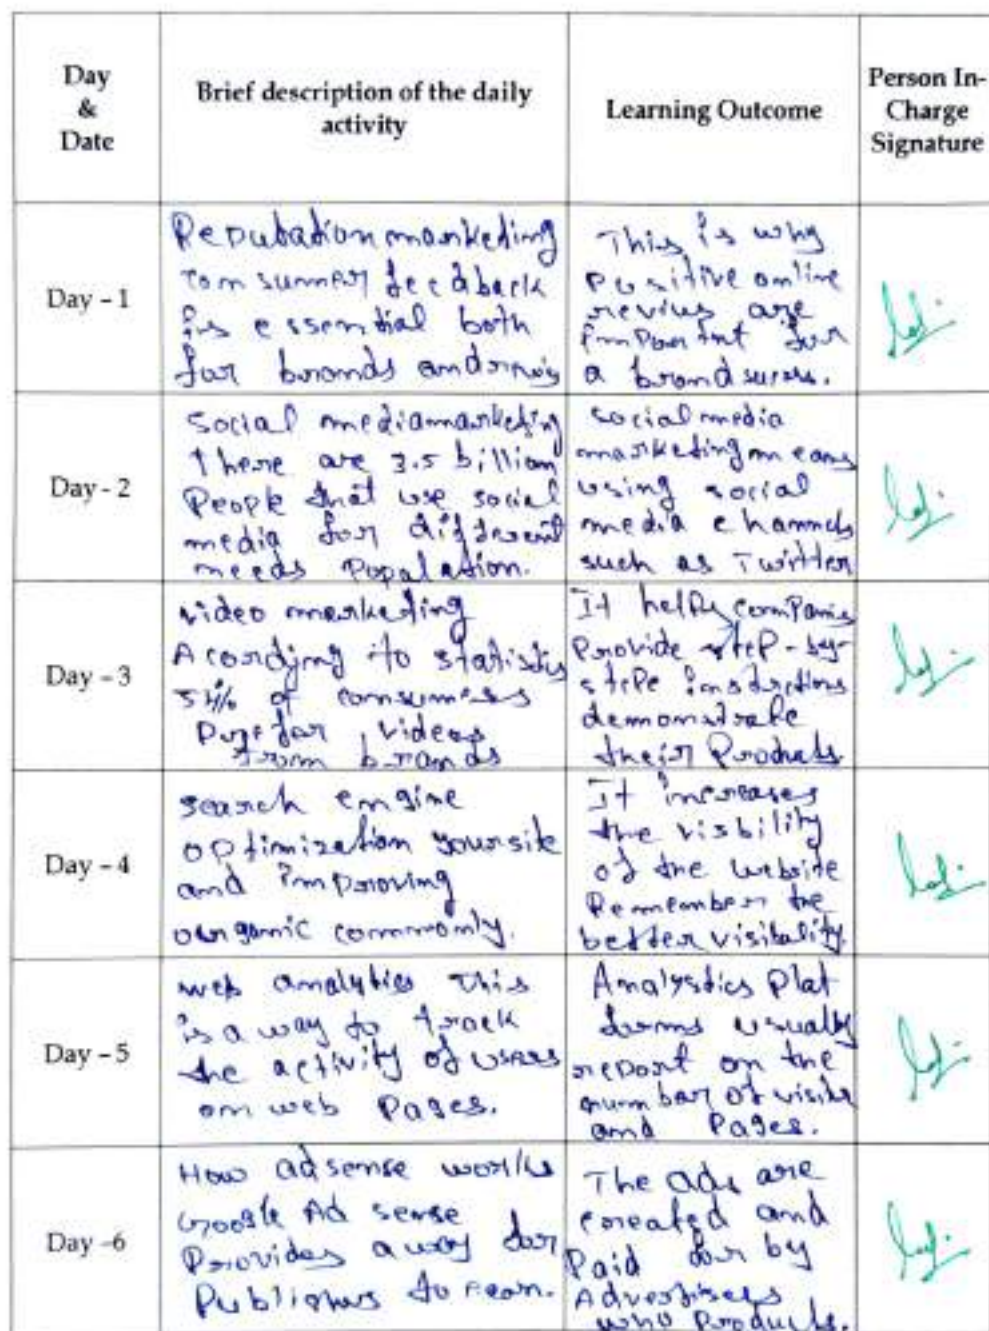 Day
&
Date
Brief description of the daily
activity
Learning Outcome
Person In-
Charge
Signature
Day - 1
Reputation marketing
consummer feedback
is essential both
for brands and
This is why
Positive online
revius are
important for
a brand
Day - 2
Social media marketing
there are 3.5 billion
People that use social
media for different
needs Popalation.
social media
marketing means
using social
media channels
such as Twitter
Day - 3
video marketing
Acording to statistics
of consumers
Prefar videos
from brands
It helps companies
Provide step-by-
stepe instructions
demonstrate
their Products
Day - 4
search engine
optimization your site
and improving
ourganic commonly.
It increases
the visbility
of the website
Remember the
better visibality.
Day - 5
web analytics This
is a way to track
the activity of users
on web Pages.
Analystics Plat
forms usually
report on the
number of visits
and Pages.
Day -6
How adsense works
Google Ad sense
Provides a way for
Publishers to earn.
The ads are
created and
Paid for by
Advertisers
who Products.